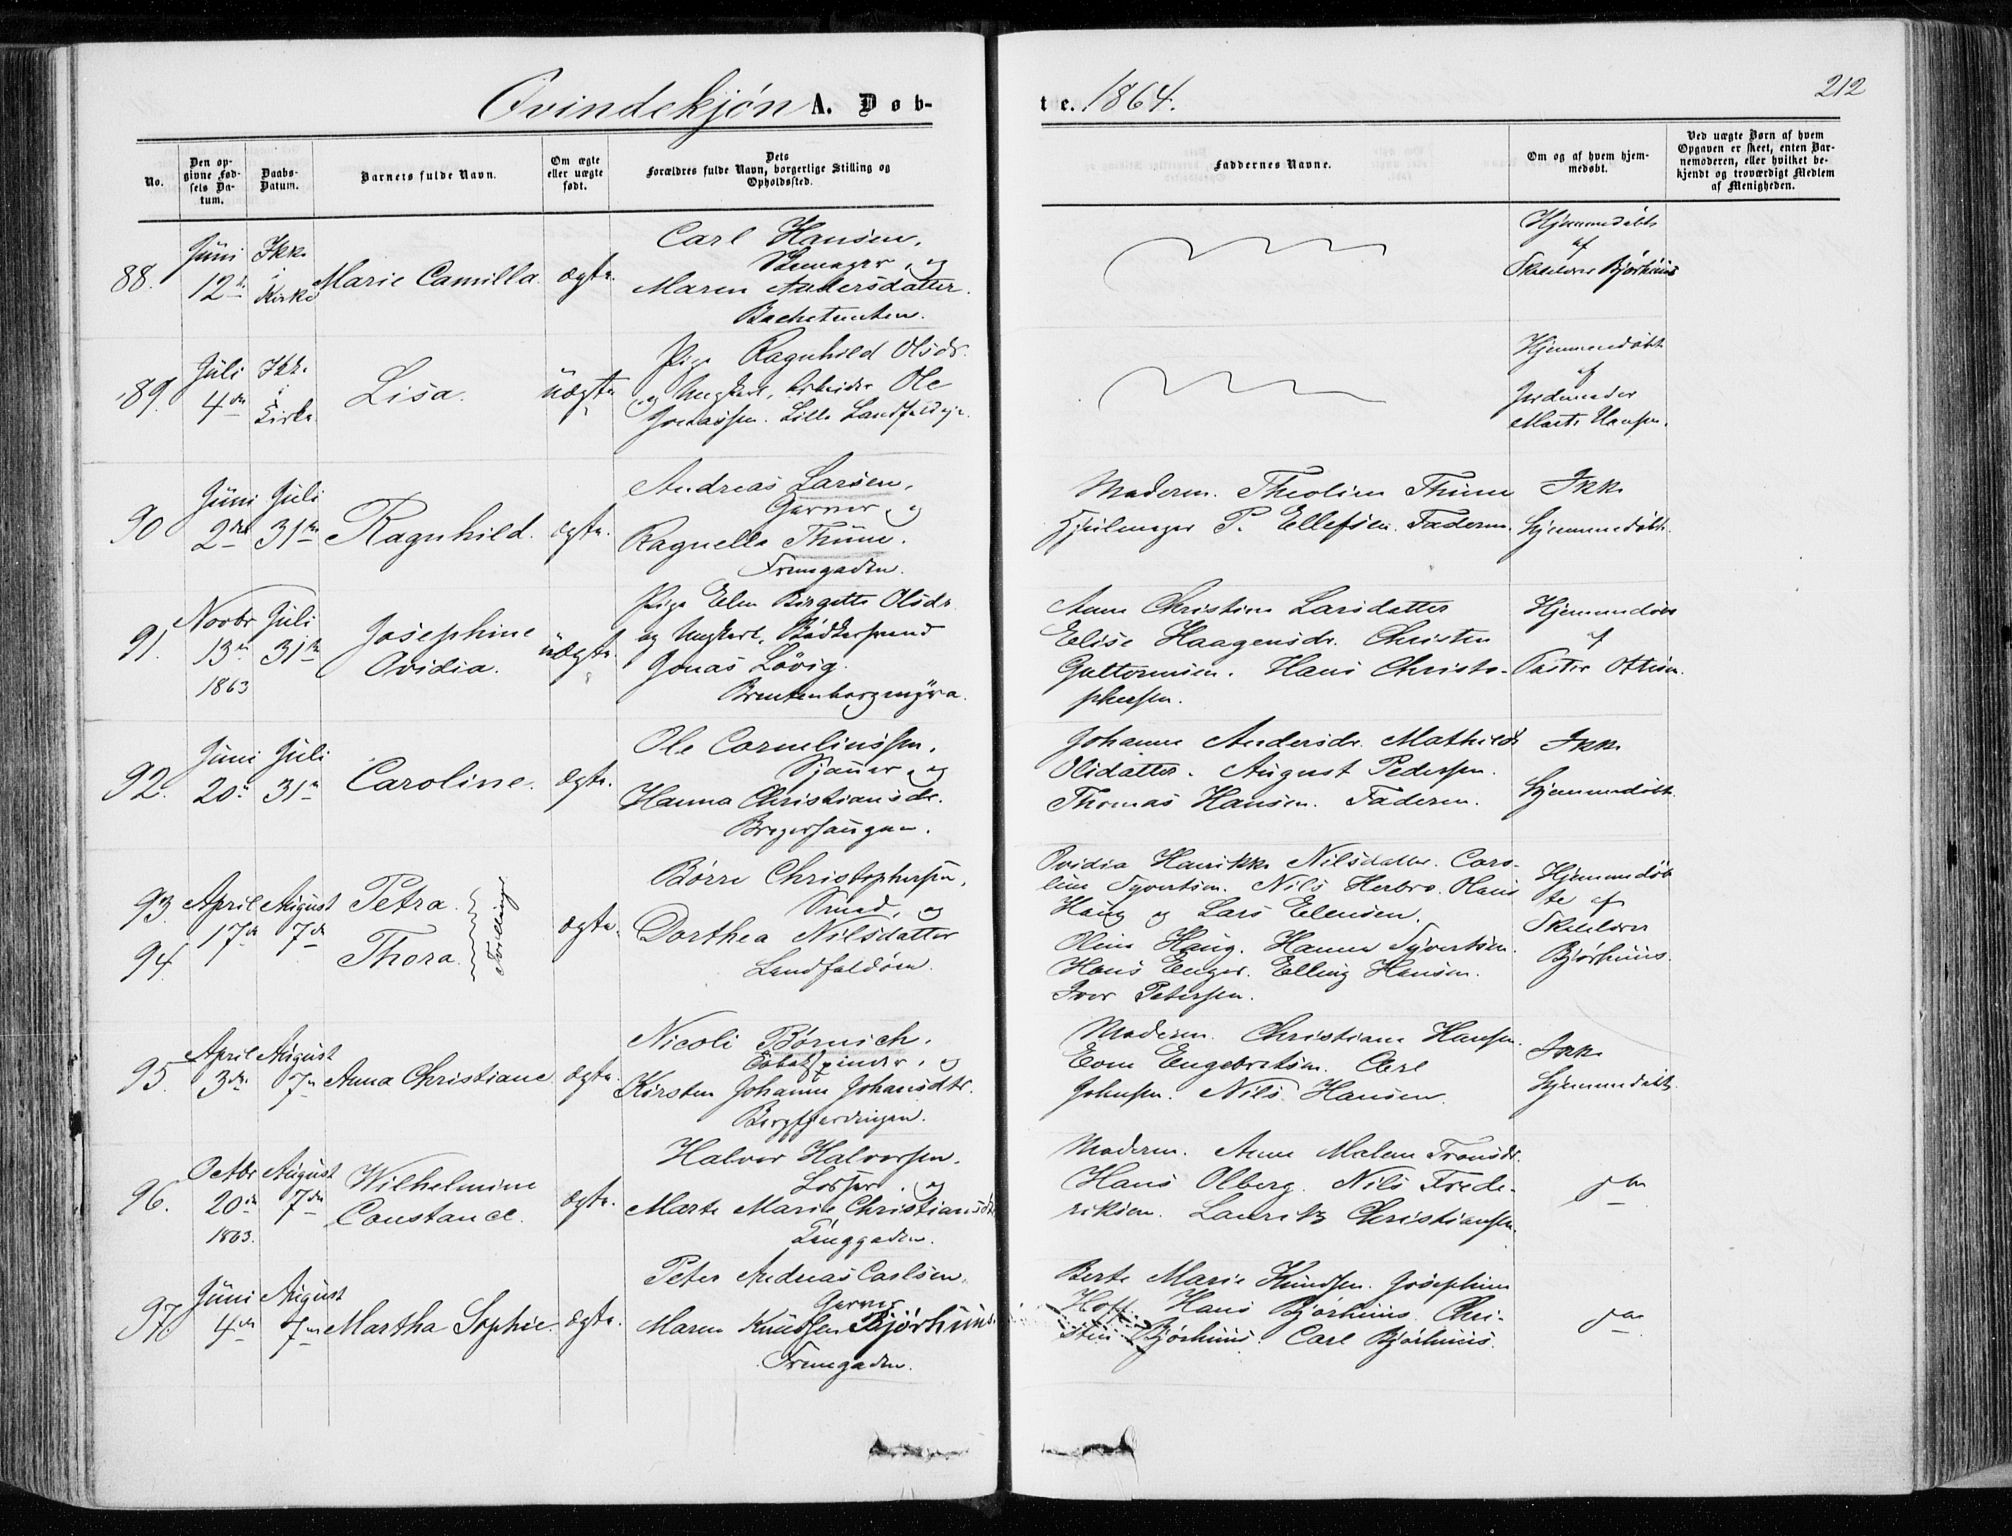 Qvindekjön A. Døb-
te. 1864.
212
No.
Den opgivne Fødsels Datum.
Daabs-Datum.
Barnets fulde Navn.
Om ægte eller uægte født.
Dets Forældres fulde Navn, borgerlige Stilling og Opholdssted.
Faddernes Navne.
Om og af hvem hjemmedøbt.
Ved uægte Børn af hvem Opgaven er skeet, enten Barnemoderen, eller hvilket bekjendt og troværdigt Medlem af Menigheden.
88.
Juni
12te
Ikke
i
Kirke
Marie Camilla.
ægte.
Carl Hansen,
og
Maren Andersdatter.
Hjemmedøbt
af
Skoleholder Bjørhuus
89.
Juli
4de
Ikke
i
Kirke
Lisa.
Uægte
Pige Ragnhild Olsdr.
og Ungkarl, Arbeider Ole
Jonassen. Lille Landfaldøje
Hjemmedøbt
af
Jordemoder
Marte Hansen.
90
Juni
2den
Juli
31te
Ragnhild.
ægte.
Andreas Larsen,
Garver, og
Ragnella Thüne.
Tverrgaden.
Moderen. Theoline Thüne
Hjulmager P. Ellefsen. Faderen.
Ikke
hjemmedøbt.
91.
Novbr
13de
1863
Juli
31te
Josephine
Ovidia.
uægte.
Pige Elen Birgitte Olsdr.
og Ungkarl, Bødkersvend
Jonas Løvig.
Brentenborgmyra.
Anne Christine Larsdatter
Elise Haagensdr. Christen
Guttormsen. Hans Christo-
phersen.
Hjemmedøbt
af
Pastor Ottesen.
92.
Juni
20de
Juli
31te
Caroline.
ægte.
Ole Corneliussen,
Sjauer, og
Hanna Christiansdr.
Bragerhaugen.
Johanne Andersdr. Mathilde
Olsdatter. August Pedersen.
Thomas Hansen. Faderen.
Ikke
hjemmedøbt.
93.
94.
April
17de
August
7de
Petra.
Thora.
Tvillinger
ægte.
Børre Christophersen,
Smed, og
Dorthea Nilsdatter
Landfaldøen.
Ovidia Henrikke Nilsdatter. Caro-
line Syvertsen. Nils Herbro. Hans
Haug og Lars Elensen.
Oline Haug. Hanne Syvertsen.
Hans Enger. Elling Hansen.
Iver Petersen.
Hjemmedøb-
te af
Skoleholder
Bjørhuus.
95.
April
3die
August
7de
Anna Christiane
ægte.
Nicoli Børnich,
Tobakspinder, og
Kirsten Johanne Johansdtr.
Bergfjerdingen.
Moderen. Christiane Hansen.
Even Engebretsen. Carl
Johnsen. Nils Hansen.
Ikke
hjemmedøbt.
96.
Octbr
20de
1863.
August
7de
Wilhelmine
Constance.
ægte.
Halvor Halvorsen,
og
Marte Marie Christiansdtr.
Tinggaden.
Moderen. Anne Malene Tronsdr.
Hans Olberg. Nils Frede-
riksen. Lauritz Christiansen.
97.
Juni
4de
August
7de
Martha Sophie.
ægte.
Peter Andreas Carlsen,
Garver
Maren Knudsen Bjørhuus.
Tverrgaden.
Berte Marie Knudsen. Josephine
Hoff. Hans Bjørhuus. Chri-
stine Bjørhuus. Carl Bjørhuus.